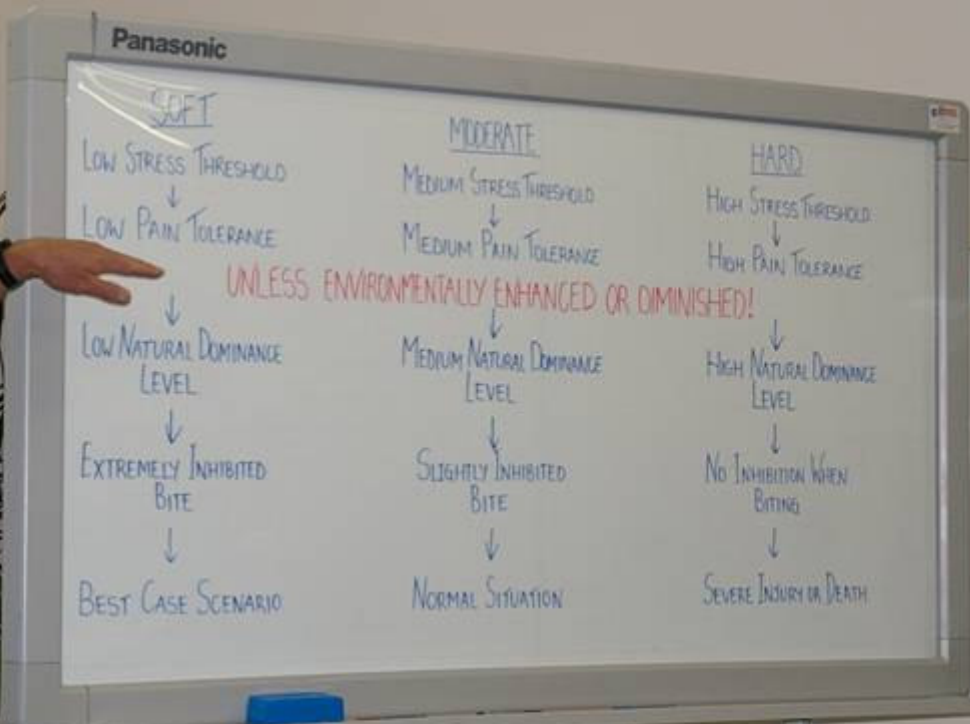 Panasonic
SOFT
LOW STRESS THRESHOLD
↓
LOW PAIN TOLERANCE
↓
LOW NATURAL DOMINANCE
LEVEL
↓
EXTREMELY INHIBITED
BITE
↓
BEST CASE SCENARIO
MODERATE
MEDIUM STRESS THRESHOLD
↓
MEDIUM PAIN TOLERANCE
↓
MEDIUM NATURAL DOMINANCE
LEVEL
↓
SLIGHTLY INHIBITED
BITE
↓
NORMAL SITUATION
HARD
HIGH STRESS THRESHOLD
↓
HIGH PAIN TOLERANCE
↓
HIGH NATURAL DOMINANCE
LEVEL
↓
NO INHIBITION WHEN
BITING
↓
SEVERE INJURY OR DEATH
UNLESS ENVIRONMENTALLY ENHANCED OR DIMINISHED!